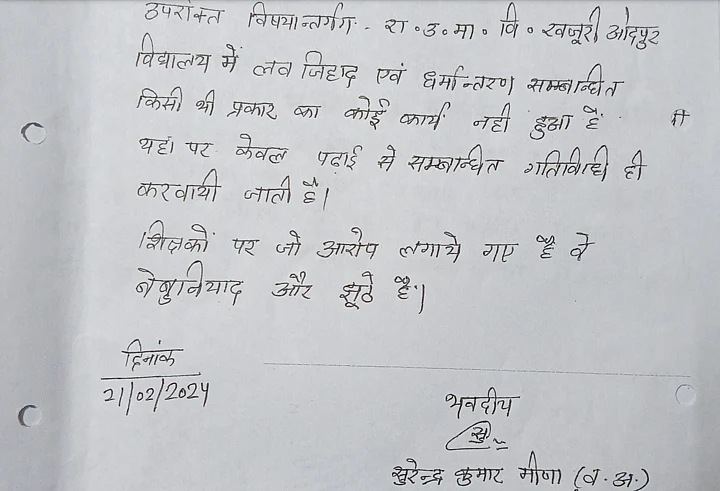 उपरोक्त विषयान्तर्गत - रा०उ०मा० वि० खजूरी ओदपुर
विद्यालय में लव जिहाद एवं धर्मान्तरण सम्बान्धित
किसी भी प्रकार का कोई कार्य नही हुआ है
यहां पर केवल पढ़ाई से सम्बान्धित गतिविधि ही
करवायी जाती है।
शिक्षकों पर जो आरोप लगाये गए है वे
बेबुनियाद और झूठे है।
दिनांक
21/02/2024
भवदीय
सुरेन्द्र कुमार मीणा (व.अ.)